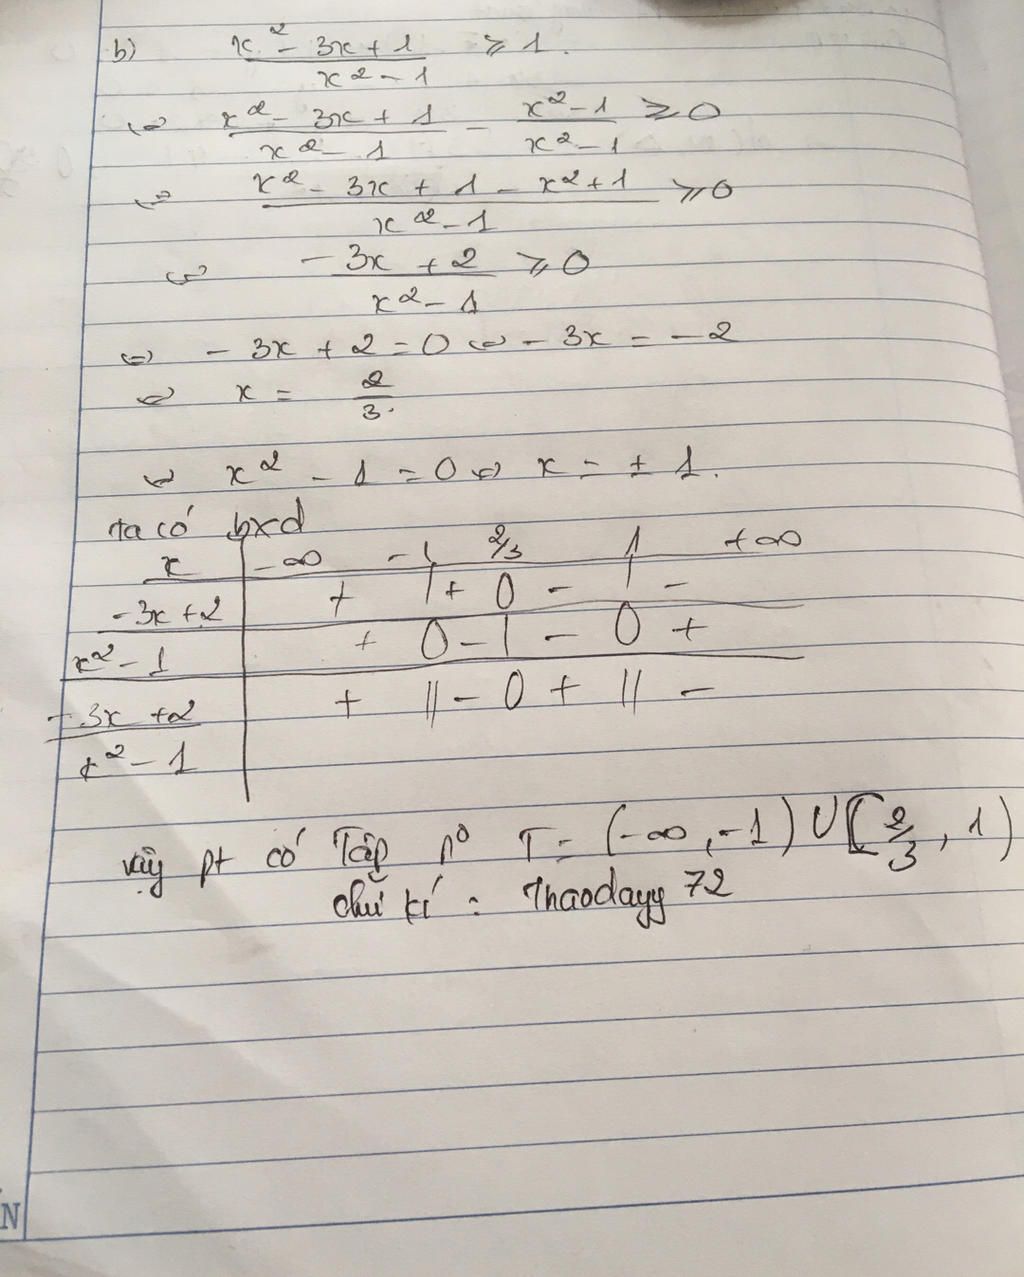 b) (x² - 3x + 1)/(x² - 1) ≥ 1.
⇔ (x² - 3x + 1)/(x² - 1) - (x² - 1)/(x² - 1) ≥ 0
⇔ (x² - 3x + 1 - x² + 1)/(x² - 1) ≥ 0
⇔ (-3x + 2)/(x² - 1) ≥ 0
⇔ - 3x + 2 = 0 ⇔ - 3x = - 2
⇔ x = 2/3.
⇔ x² - 1 = 0 ⇔ x = ± 1.
ta có bxd
x | -∞ -1 2/3 1 +∞
-3x + 2 | + | + 0 - | -
x² - 1 | + 0 - | - 0 +
(-3x + 2)/(x² - 1) | + || - 0 + || -
vậy pt có Tập n⁰ T = (-∞, -1) ∪ [2/3, 1)
chữ kí : Thaodayy 72
N